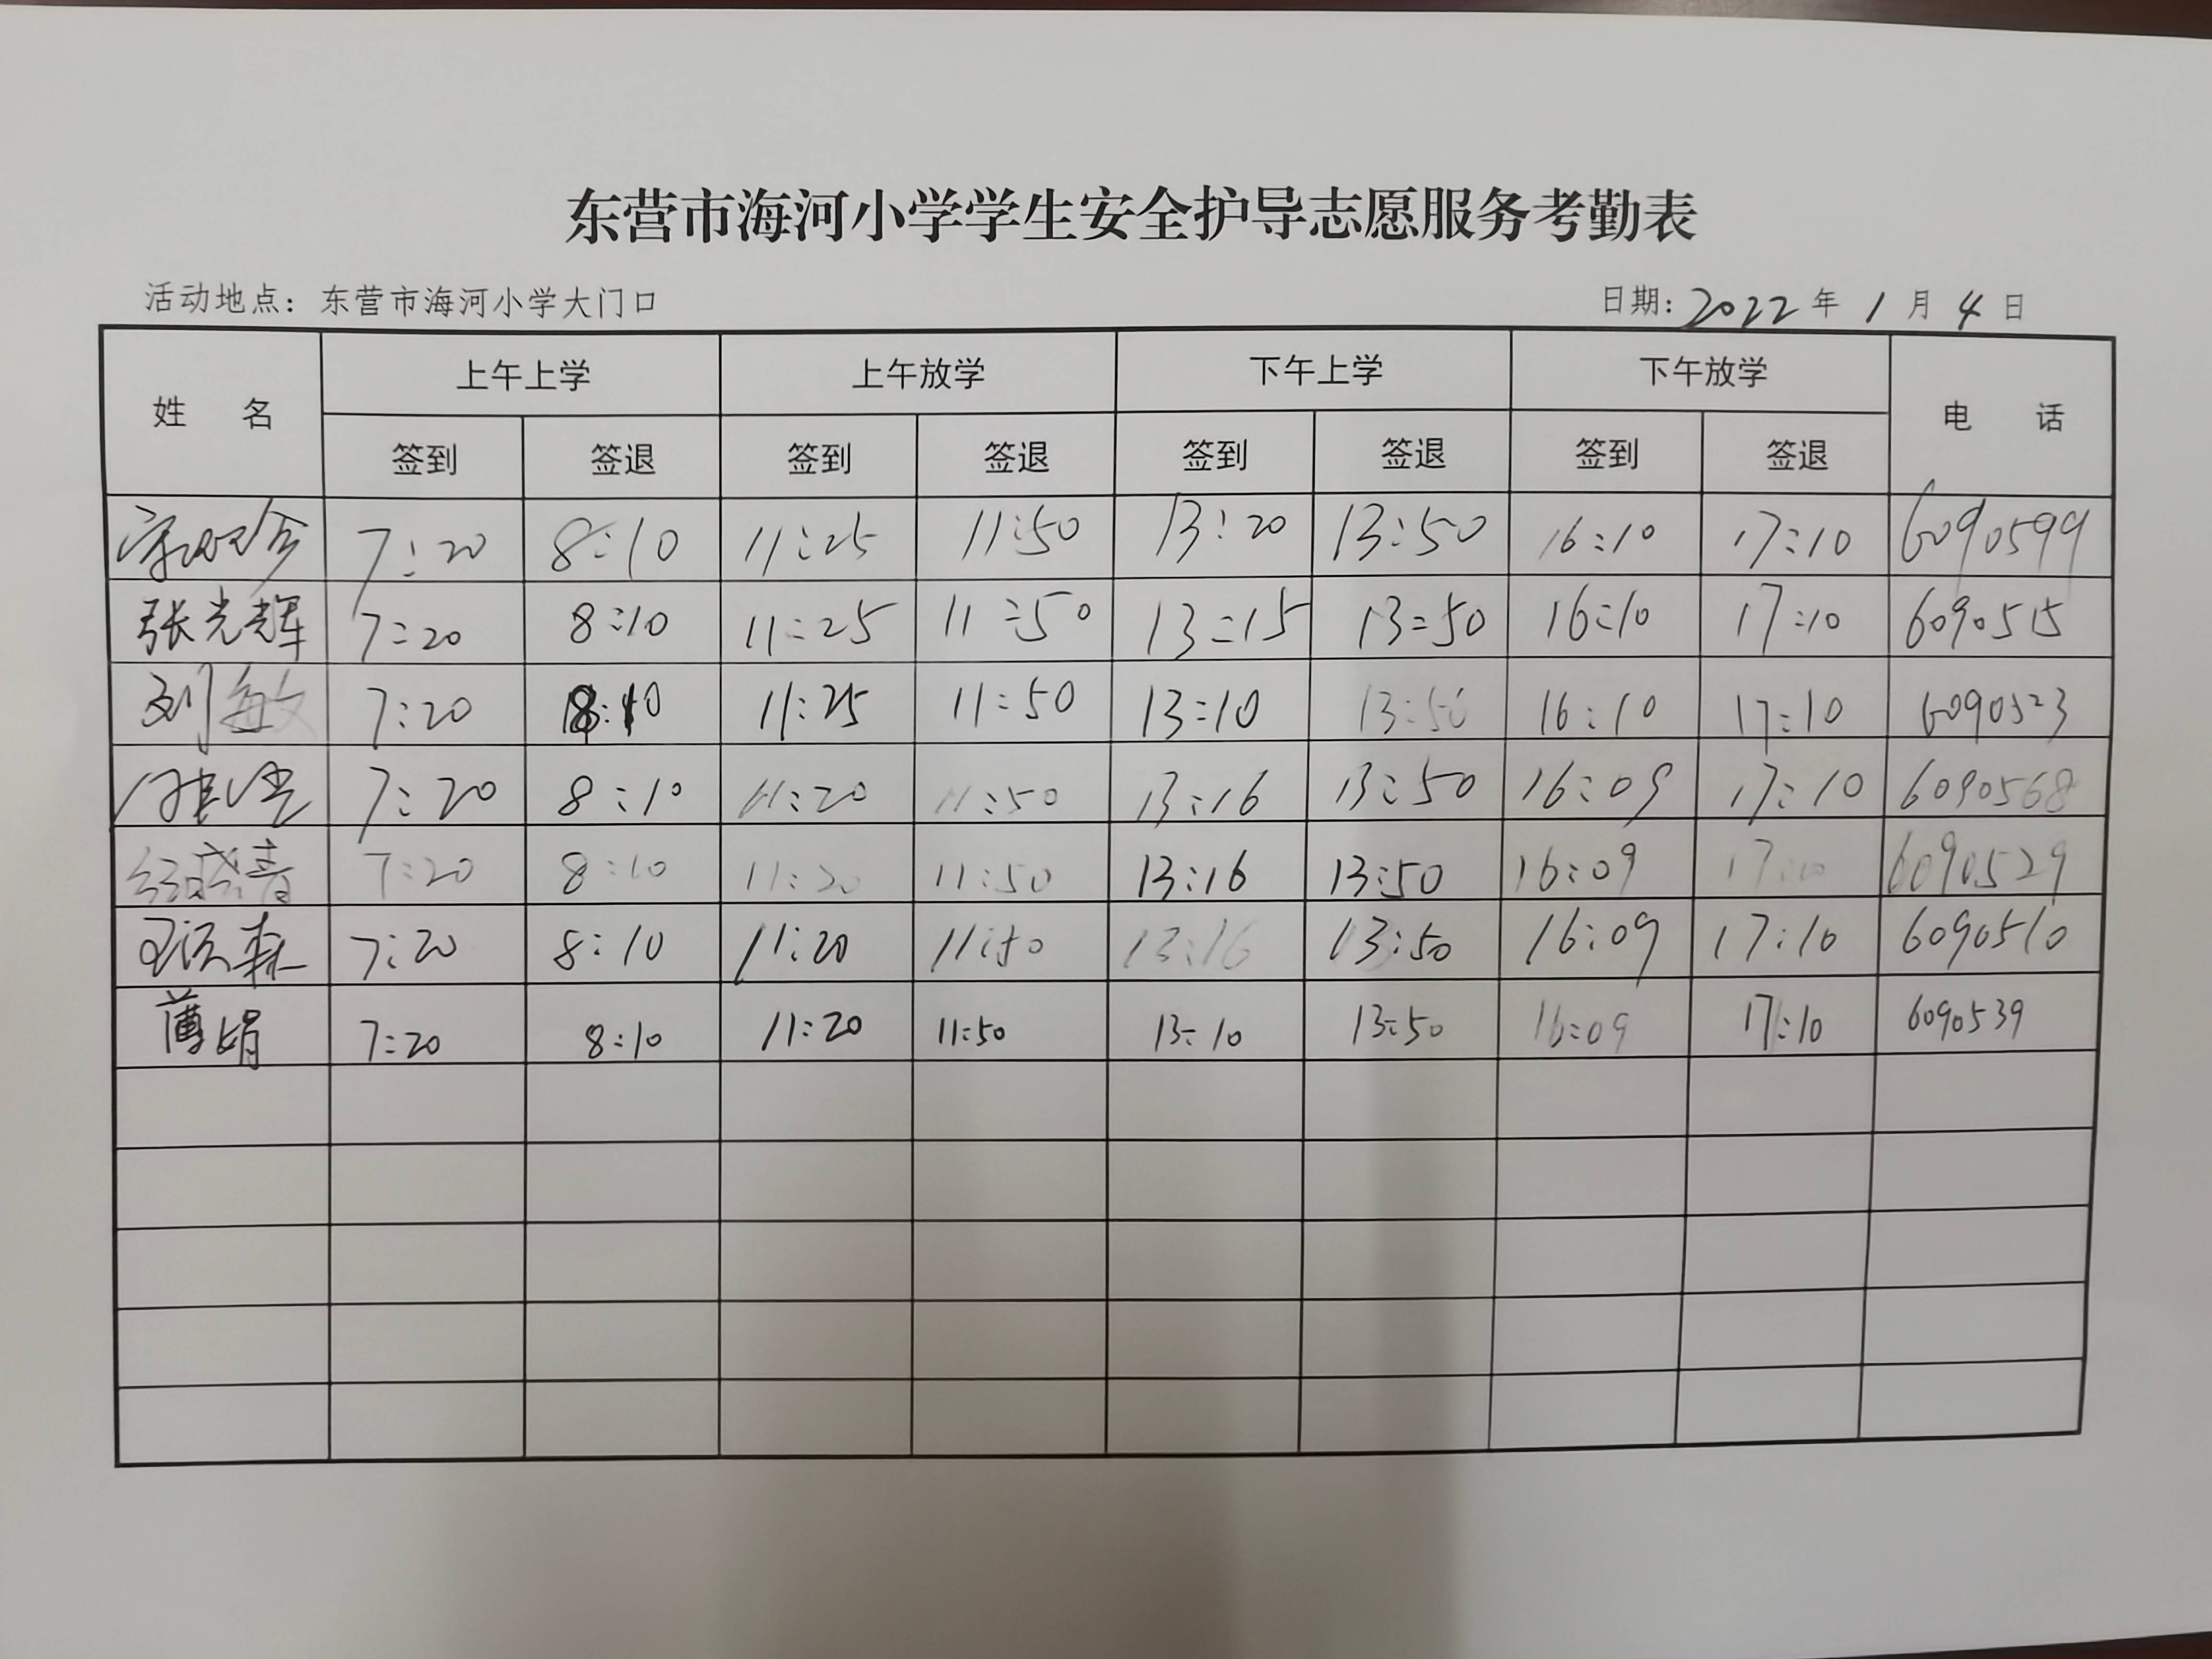 东营市海河小学学生安全护导志愿服务考勤表
活动地点：东营市海河小学大门口 日期：2022年1月4日
姓 名 上午上学 上午放学 下午上学 下午放学 电 话
签到 签退 签到 签退 签到 签退 签到 签退
7:20 8:10 11:25 11:50 13:20 13:50 16:10 17:10 6090599
张光辉 7:20 8:10 11:25 11:50 13:15 13:50 16:10 17:10 6090515
刘敏 7:20 8:10 11:25 11:50 13:10 13:50 16:10 17:10 6090523
7:20 8:10 11:20 11:50 13:16 13:50 16:09 17:10 6090568
7:20 8:10 11:20 11:50 13:16 13:50 16:09 17:10 6090529
7:20 8:10 11:20 11:50 13:16 13:50 16:09 17:10 6090510
薄娟 7:20 8:10 11:20 11:50 13:10 13:50 16:09 17:10 6090539